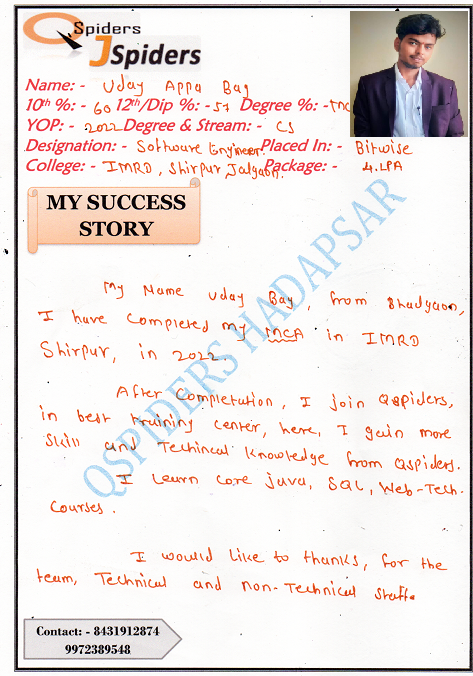 QSpiders
JSpiders
Name: - Uday Appa Bag
10th %: - 60 12th/Dip %: - 57 Degree %: - MC
YOP: - 2022 Degree & Stream: - CS
Designation: - Software Engineer Placed In: - Bitwise
College: - IMRD, Shirpur, Jalgaon. Package: - 4.LPA
MY SUCCESS
STORY
My Name Uday Bag, from Bhadgaon,
I have completed my MCA in IMRD
Shirpur, in 2022.
After Completution, I join Qspiders,
in best training center, here, I gain more
Skill and Techincal knowledge from Qspiders.
I learn core java, SQL, Web-Tech.
Courses.
I would like to thanks, for the
team, Technical and non-Technical staff.
QSPIDERS HADAPSAR
Contact: - 8431912874
9972389548